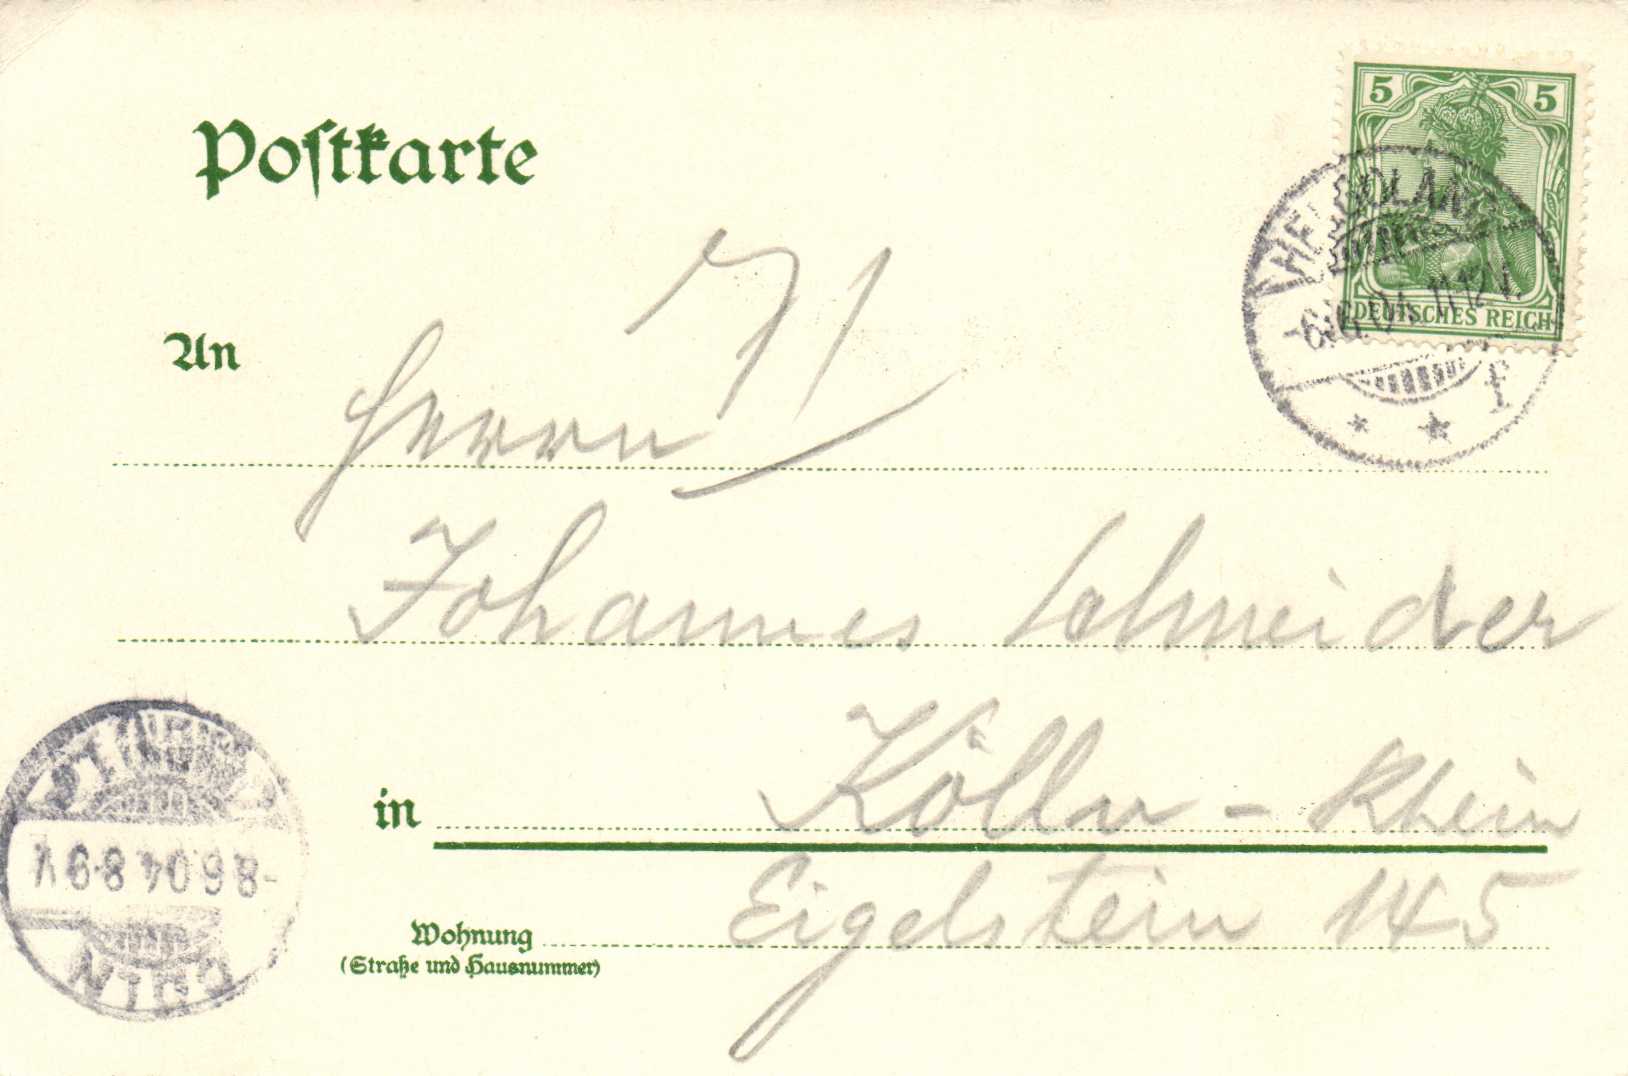 Postkarte
5 5
HELGOLAND
6.6.04. 11-12V.
DEUTSCHES REICH
f
An
Herrn
Johannes Schneider
in Kölln - Rhein
Wohnung Eigelstein 145
(Straße und Hausnummer)
CÖLN
-8.6.04. 8-9V